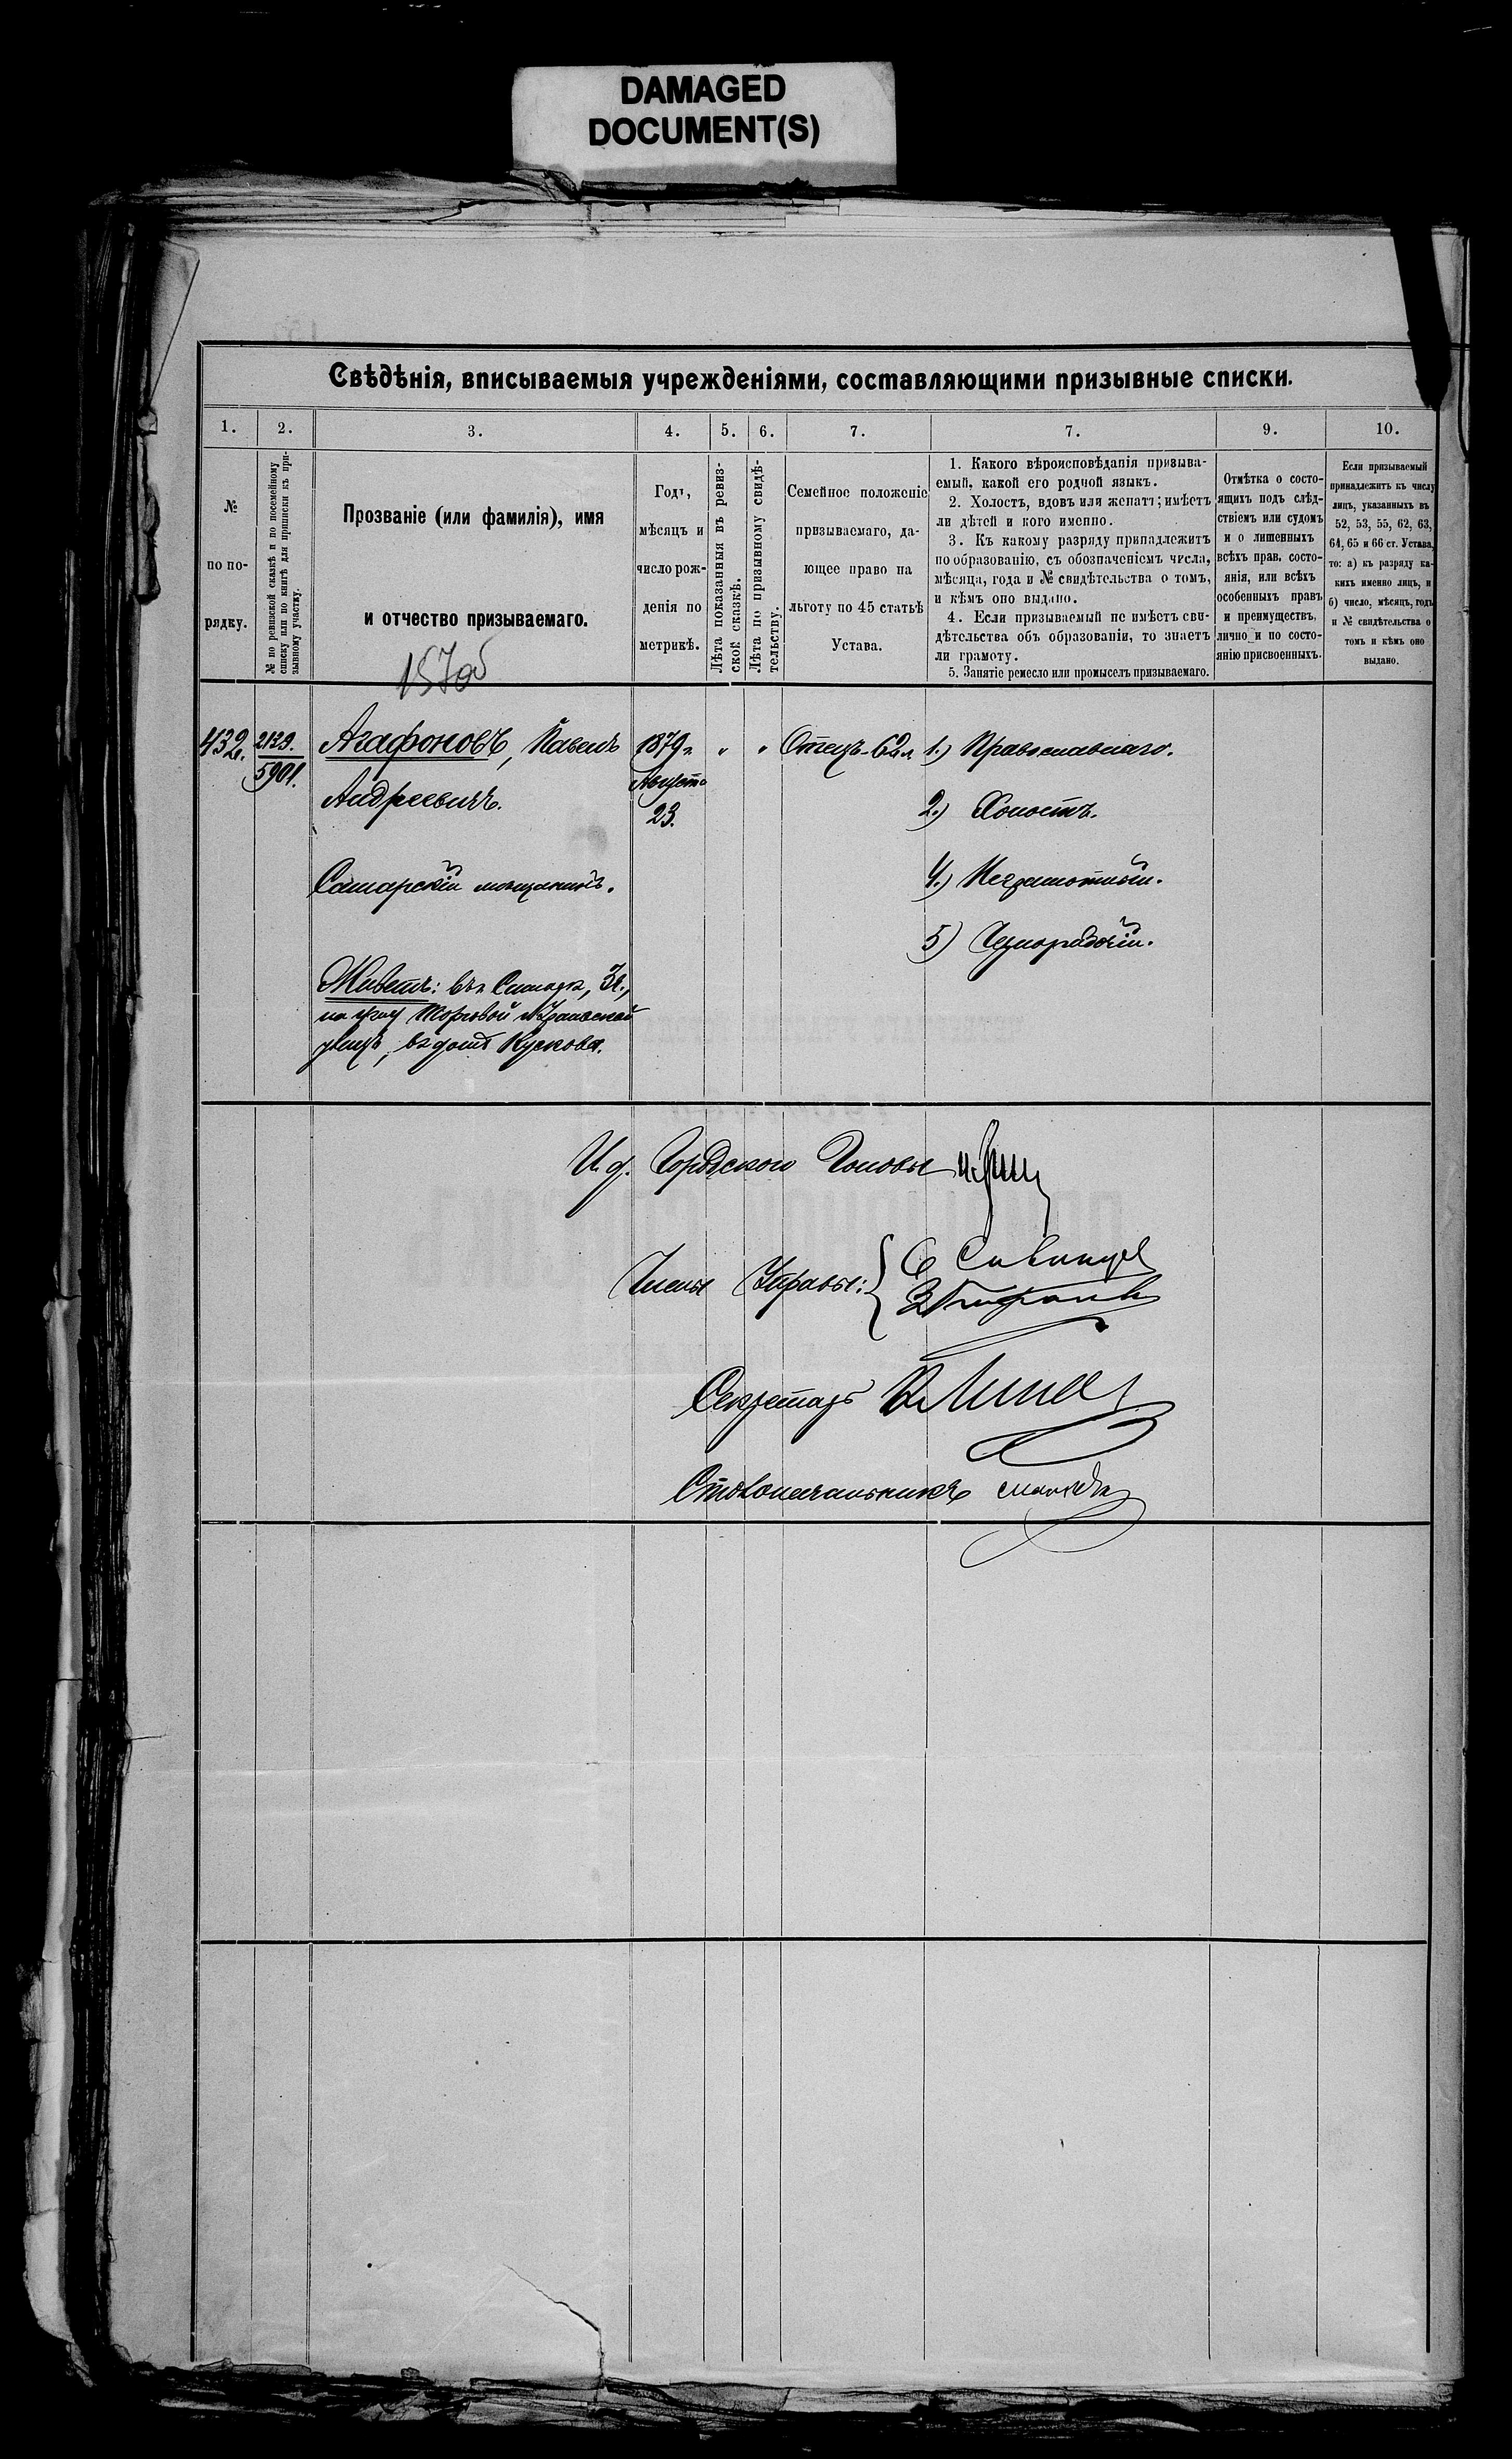 DAMAGED
DOCUMENT(S)
Свѣдѣнія, вписываемыя учрежденіями, составляющими призывные списки.
1. 2. 3. 4. 5. 6. 7. 7. 9. 10.
№
по по-
рядку.
№ по ревизской сказкѣ и по посемейному
списку или по книгѣ для приписки къ при-
зывному участку.
Прозваніе (или фамилія), имя
и отчество призываемаго.
Годъ,
мѣсяцъ и
число рож-
денія по
метрикѣ.
Лѣта показанныя въ ревиз-
ской сказкѣ.
Лѣта по призывному свидѣ-
тельству.
Семейное положеніе
призываемаго, да-
ющее право на
льготу по 45 статьѣ
Устава.
1. Какого вѣроисповѣданія призыва-
емый, какой его родной языкъ.
2. Холостъ, вдовъ или женатъ; имѣетъ
ли дѣтей и кого именно.
3. Къ какому разряду принадлежитъ
по образованію, съ обозначеніемъ числа,
мѣсяца, года и № свидѣтельства о томъ,
и кѣмъ оно выдано.
4. Если призываемый не имѣетъ сви-
дѣтельства объ образованіи, то знаетъ
ли грамоту.
5. Занятіе ремесло или промыселъ призываемаго.
Отмѣтка о состо-
ящихъ подъ слѣд-
ствіемъ или судомъ
и о лишенныхъ
всѣхъ прав, состо-
янія, или всѣхъ
особенныхъ правъ
и преимуществъ,
лично и по состо-
янію присвоенныхъ.
Если призываемый
принадлежитъ къ числу
лицъ, указанныхъ въ
52, 53, 55, 62, 63,
64, 65 и 66 ст. Устава,
то: а) къ разряду ка-
кихъ именно лицъ, и
б) число, мѣсяцъ, годъ
и № свидѣтельства о
томъ и кѣмъ оно
выдано.
157об
432.
2129.
5901.
Агафоновъ, Павелъ
Андреевичъ.
Самарскій мѣщанинъ.
Живетъ: въ Самарѣ, 3ч.,
на углу Торговой и Уральской
улицъ, въ домѣ Кускова.
1879г.
Августа
23.
" "
Отецъ - 62л.
1.) Православнаго.
2.) Холостъ.
4.) Неграмотный.
5) Чернорабочій.
И. д. Городского Головы
Члены Управы:
Секретарь
Столоначальникъ